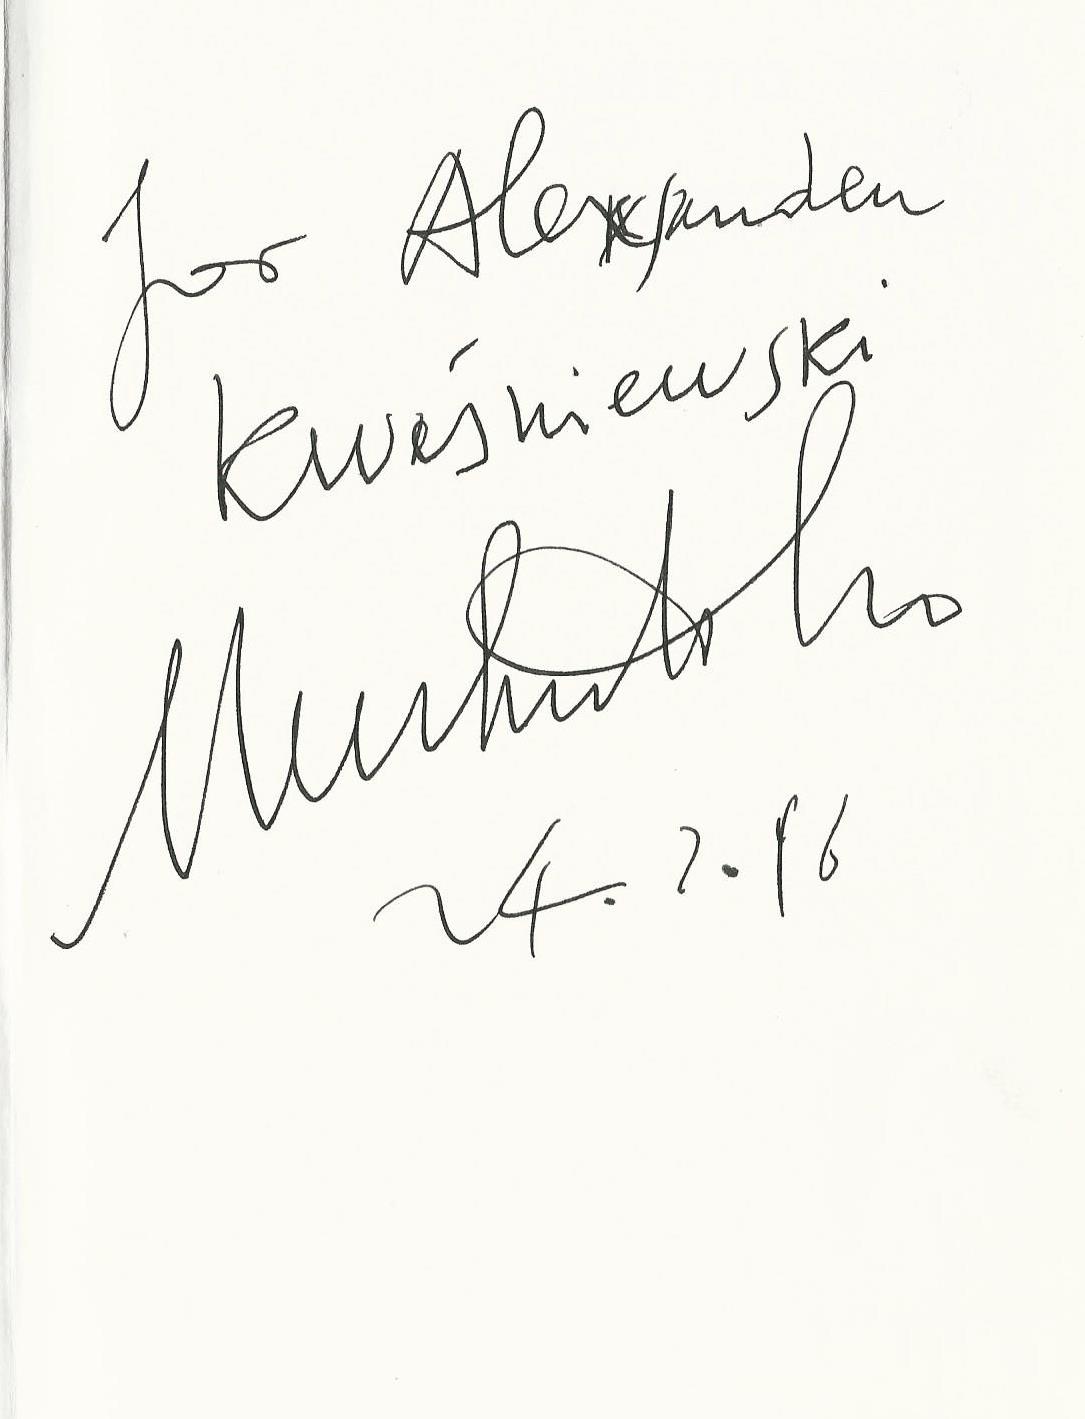 for Alexander
Kwaśniewski
24.7.96